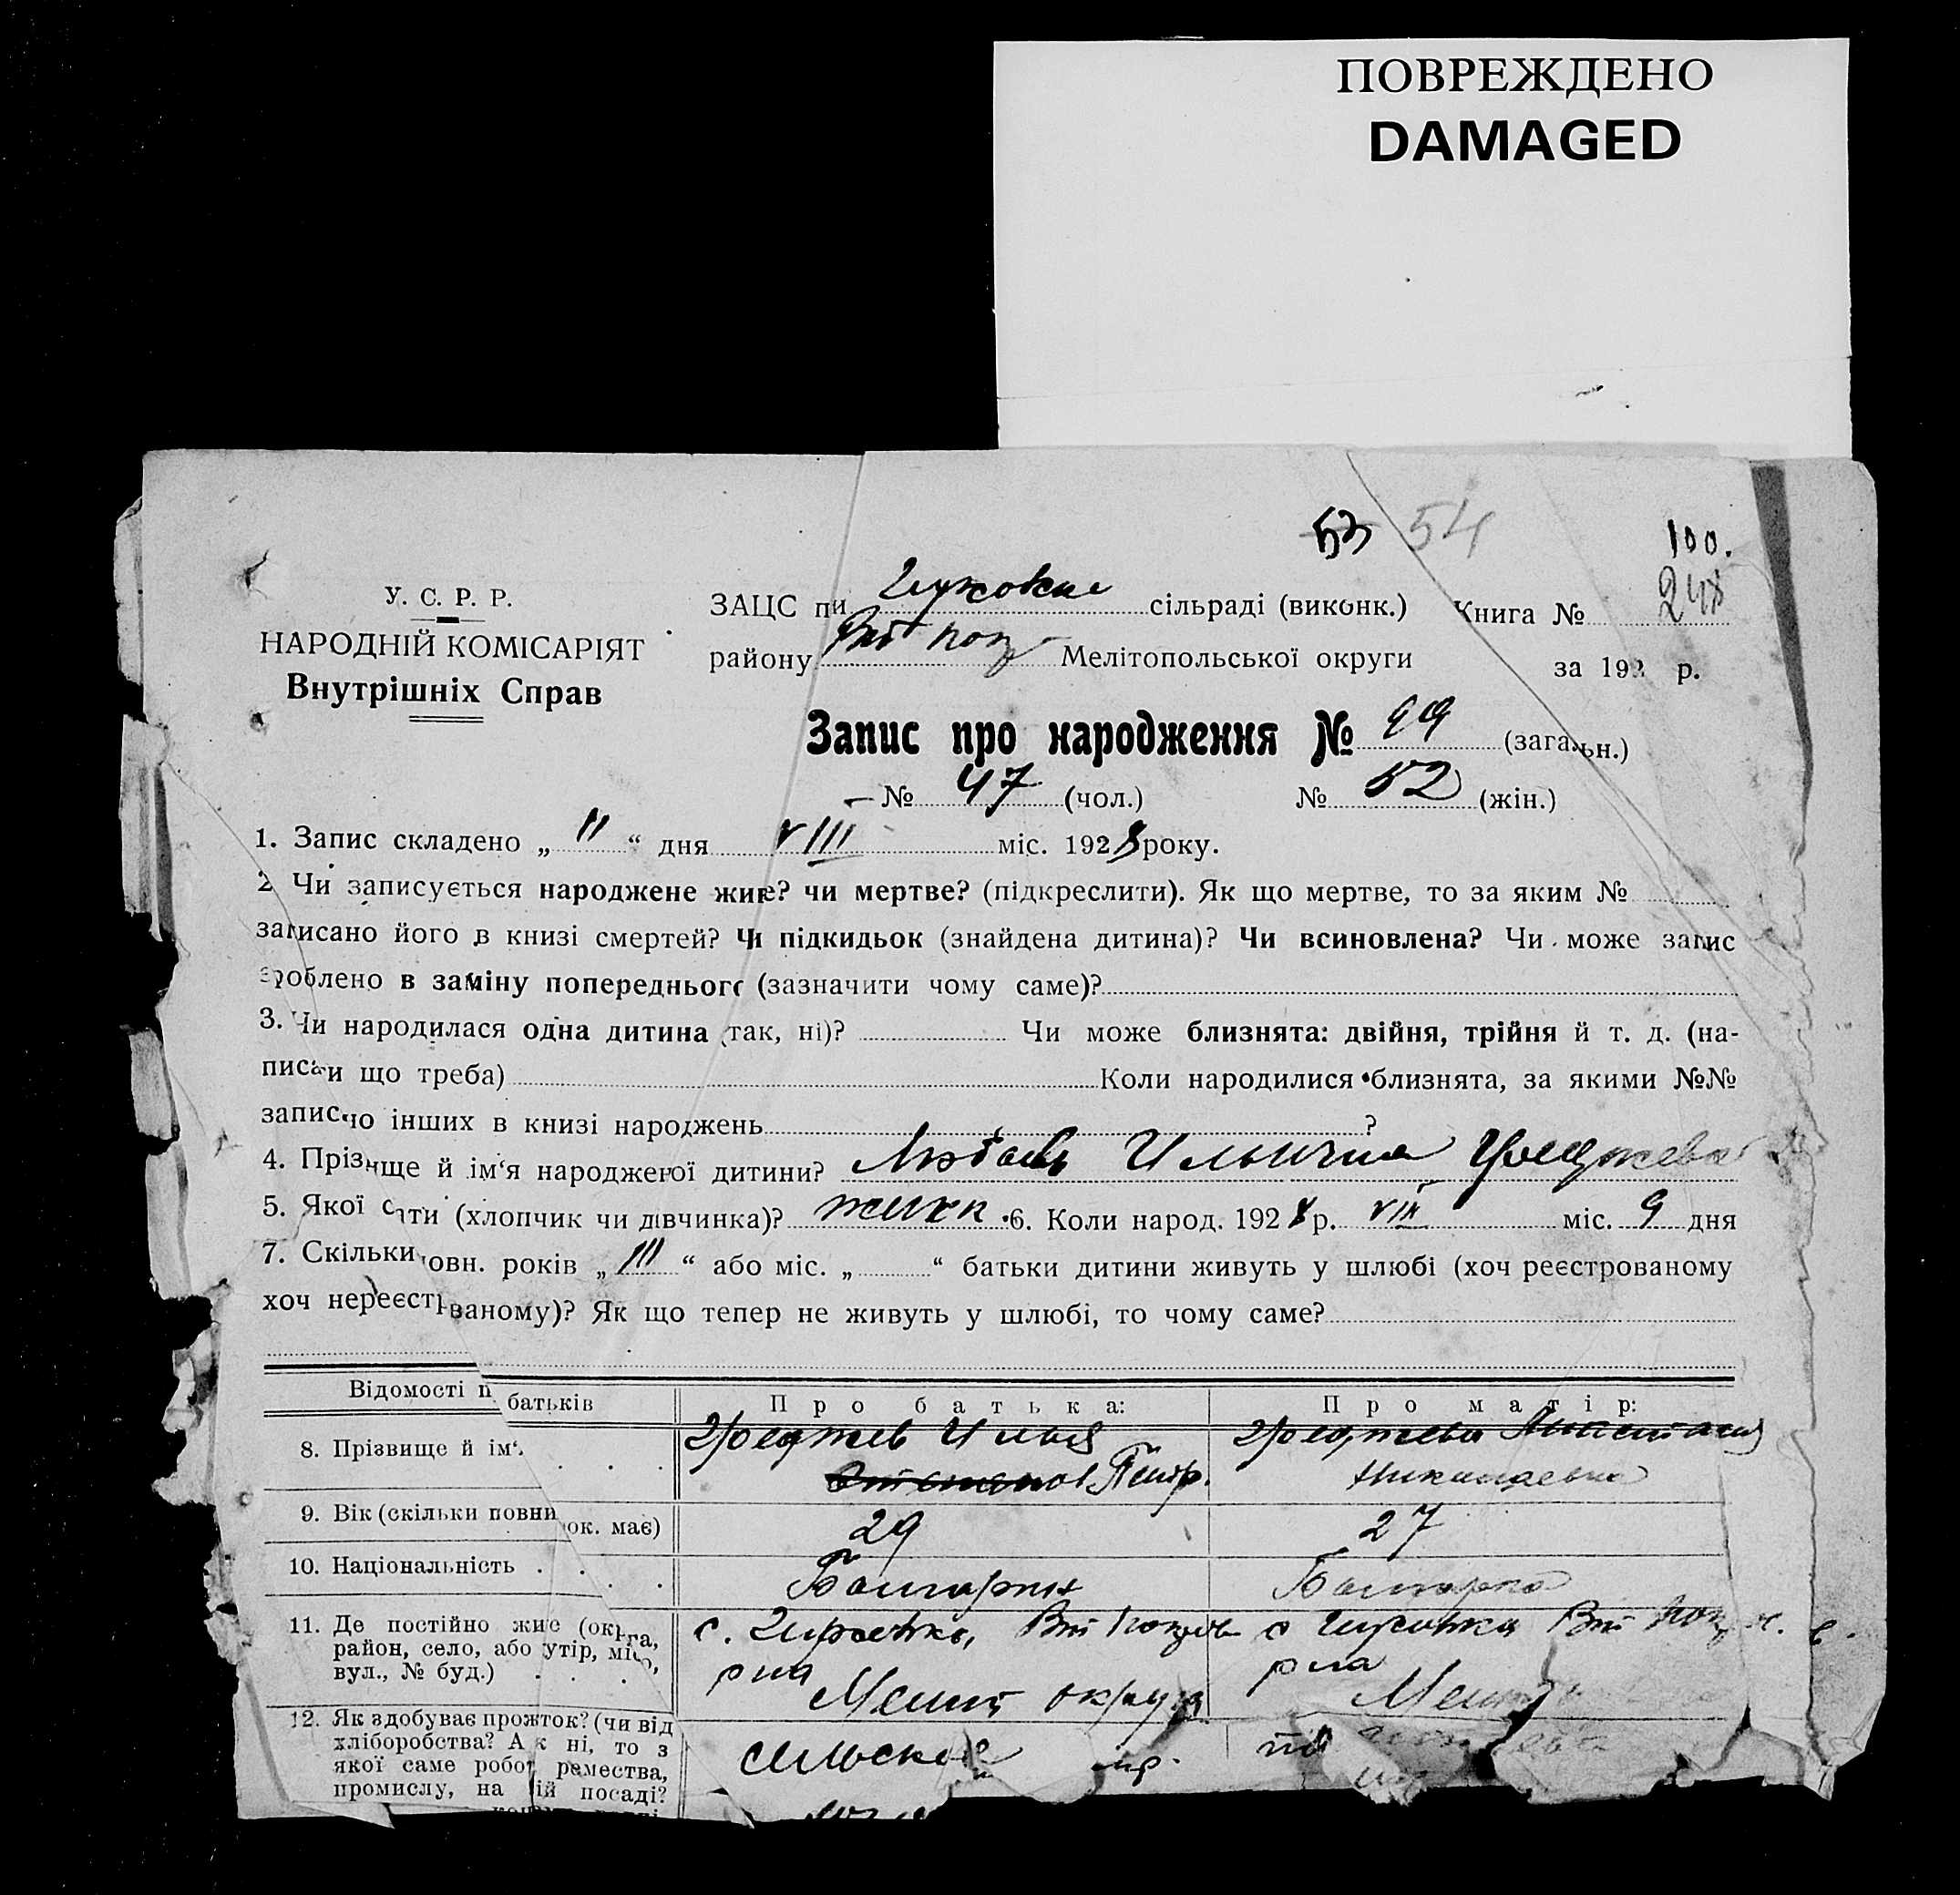 ПОВРЕЖДЕНО
DAMAGED
53 54
100.
У. С. Р. Р.
НАРОДНІЙ КОМІСАРІЯТ
Внутрішніх Справ
ЗАЦС пи сільраді (виконк.) Книга №
району Мелітопольської округи за 192 р.
Запис про народження № 99 (загальн.)
№ 47 (чол.) № 52 (жін.)
1. Запис складено „ 11 “ дня VIII міс. 1928 року.
2 Чи записується народжене живе? чи мертве? (підкреслити). Як що мертве, то за яким №
записано його в книзі смертей? Чи підкидьок (знайдена дитина)? Чи всиновлена? Чи може запис
зроблено в заміну попереднього (зазначити чому саме)?
3. Чи народилася одна дитина (так, ні)? Чи може близнята: двійня, трійня й т. д. (на-
писати що треба) Коли народилися близнята, за якими №№
записано інших в книзі народжень ?
4. Прізвище й ім‘я народженої дитини? Любовь Ильична
5. Якої стати (хлопчик чи дівчинка)? женск. 6. Коли народ. 1928 р. VIII міс. 9 дня
7. Скільки повн. років „ III “ або міс. „ “ батьки дитини живуть у шлюбі (хоч реєстрованому
хоч нереєстрованому)? Як що тепер не живуть у шлюбі, то чому саме?
Відомості п батьків Про батька: Про матір:
8. Прізвище й ім‘. . . . Илья Анастасия
Петр. Николаевна
9. Вік (скільки повни ок. має) 29 27
10. Національність . . . . Болгарин Болгарка
11. Де постійно живе (округа,
район, село, або хутір, місто,
вул., № буд.) . . .
рна рна
Мелит округа Мелит
12. Як здобуває прожиток? (чи від
хліборобства? А як ні, то з
якої саме роботи ремества,
промислу, на якій посаді?
сельское